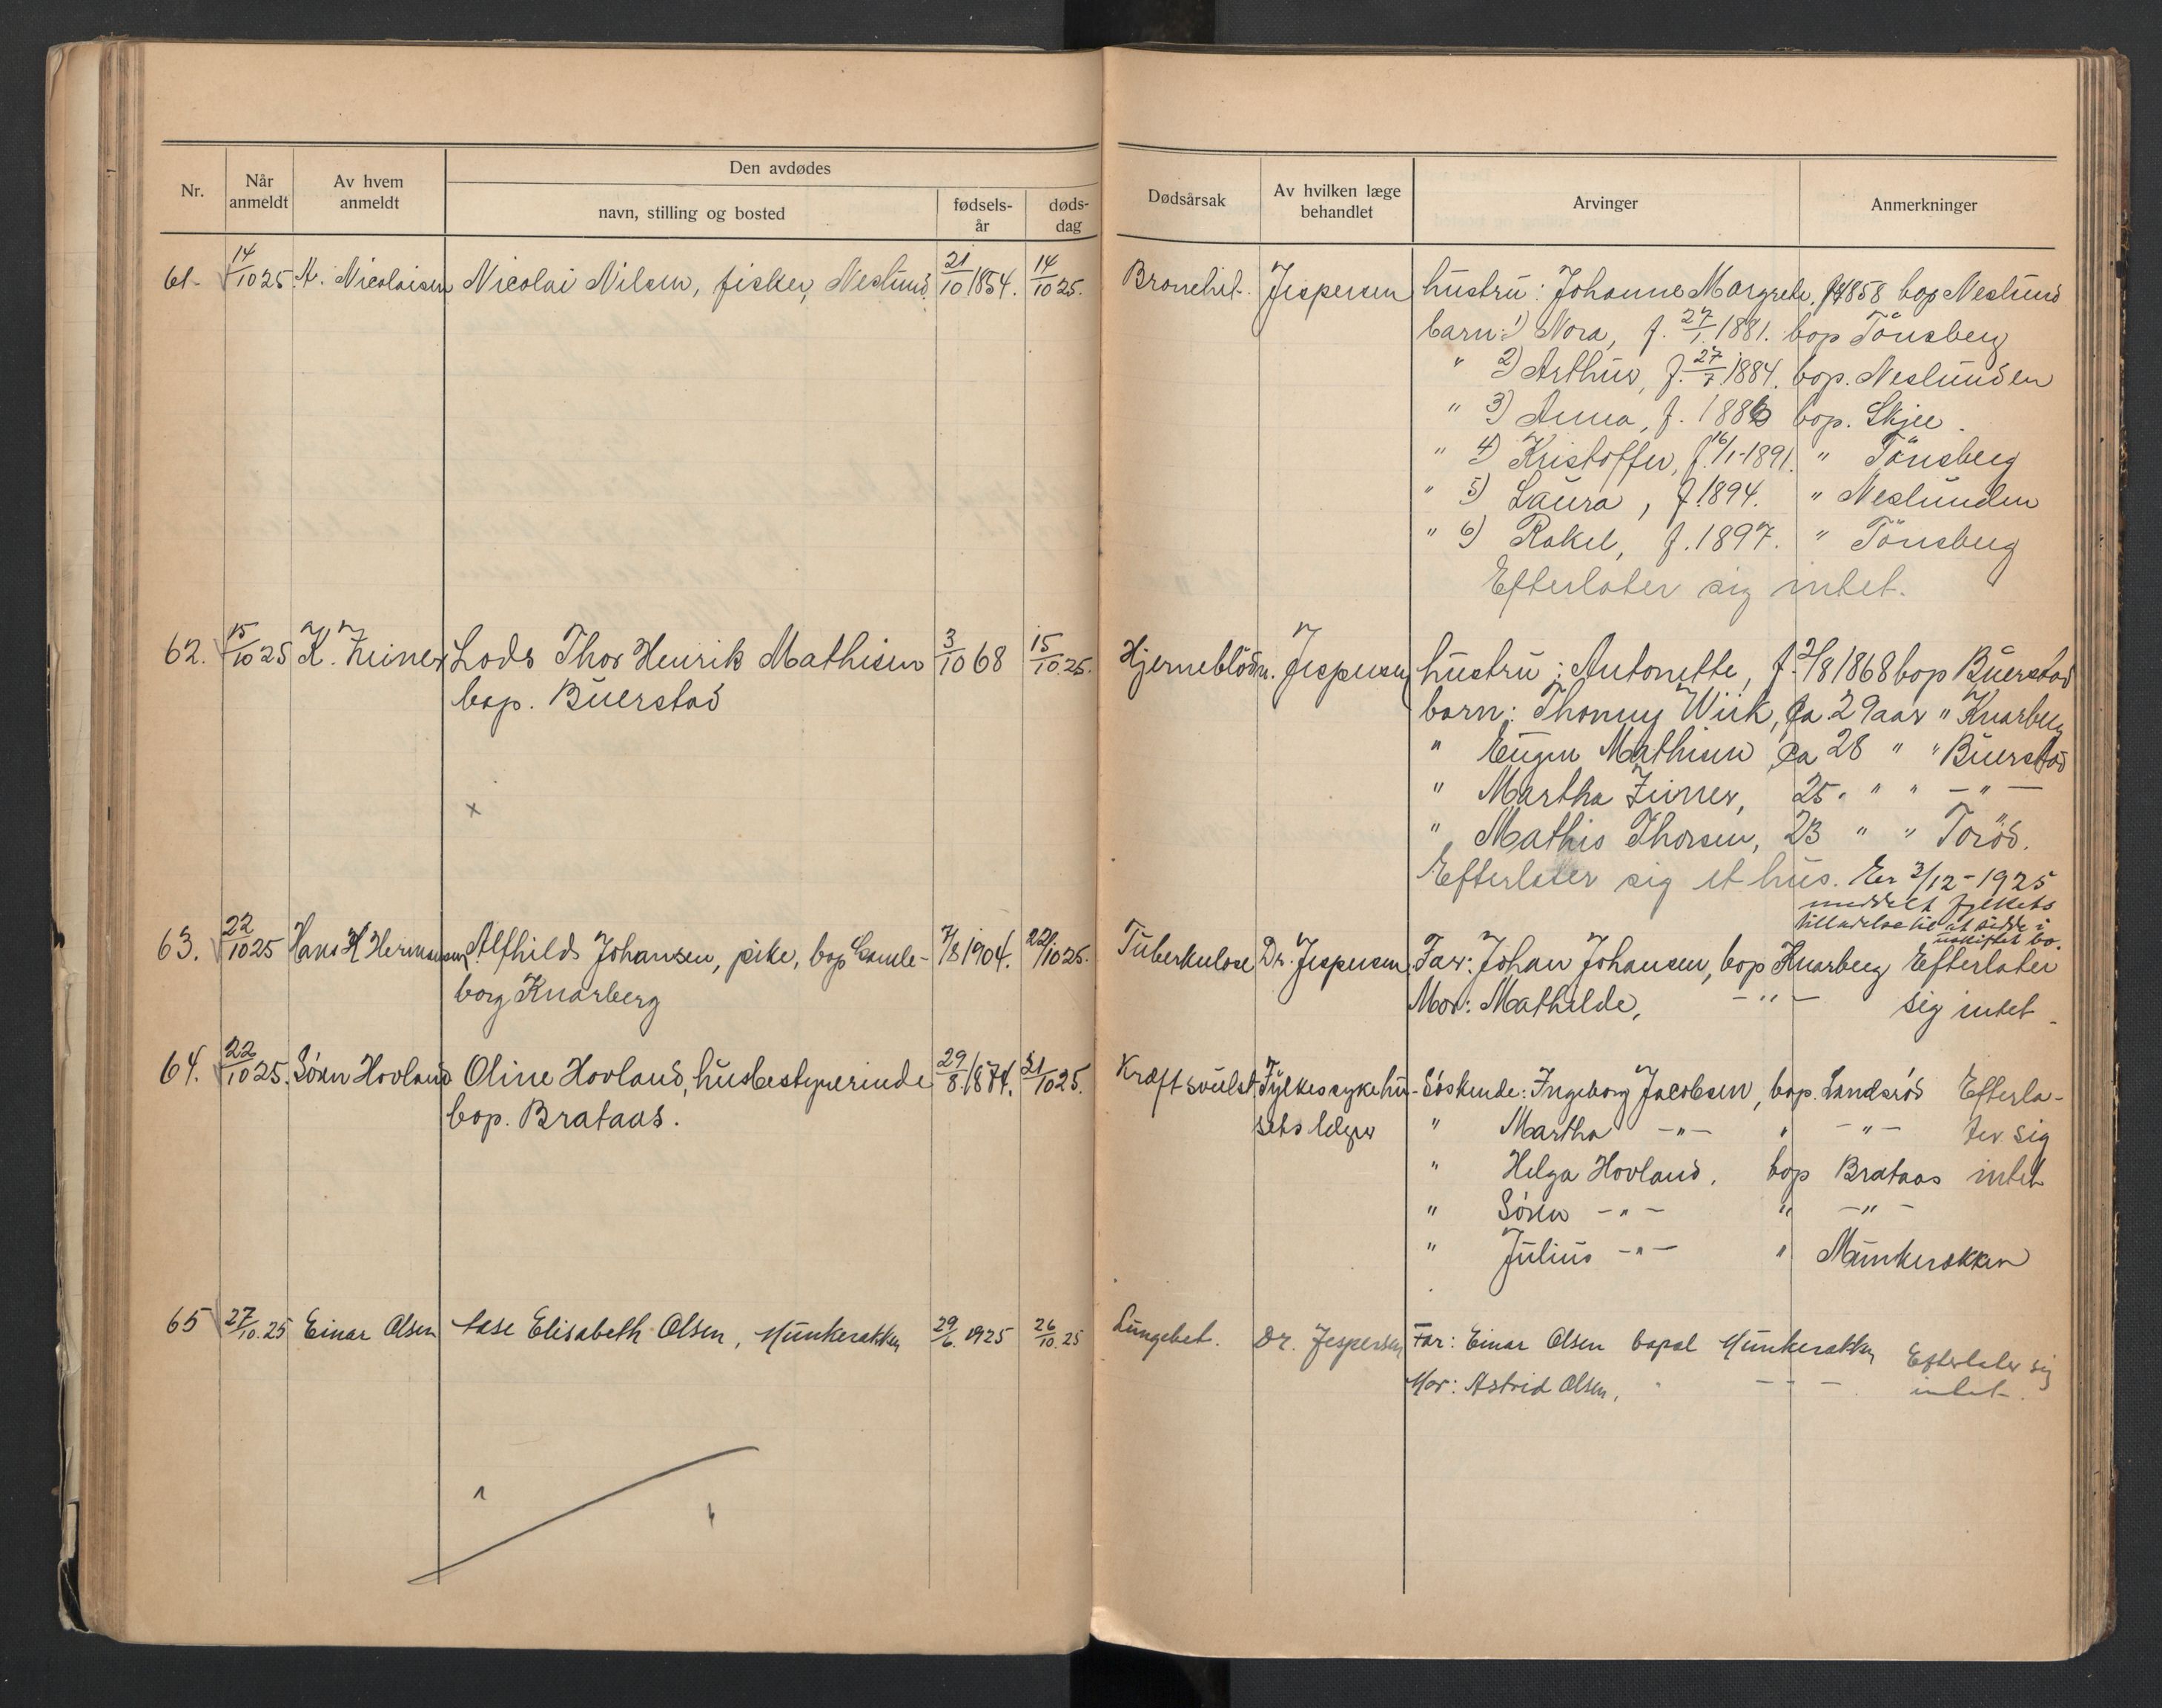 Nr.
Når anmeldt
Av hvem anmeldt
Den avdødes
navn, stilling og bosted
fødsels-år
døds-dag
Dødsårsak
Av hvilken læge behandlet
Arvinger
Anmerkninger
61. 14/10 25. N. Nicolaisen Nicolai Nilsen, fisker, Neslund. 21/10 1854. 14/10 25. Bronchit. Jespersen hustru: Johanne Margrete, 1858 bop Neslund
barn: 1) Nora, f. 27/1 1881. bop Tönsberg
" 2) Arthur, f. 27/7 1884. bop. Neslunden
" 3) Anna, f. 1886 bop. Skjee.
" 4) Kristoffer, f. 16/1-1891. " Tönsberg
" 5) Laura, f. 1894. " Neslunden
" 6) Rakel, f. 1897. " Tönsberg
Efterlater sig intet.
62. 15/10 25 K. Zeiner Lods Thor Henrik Mathisen 3/10 68 15/10 25. Hjerneblödn. Jespersen hustru: Antonette, f. 2/8 1868 bop Buerstad
bop. Buerstad barn: Thonny Wiik, ca 29 aar " Knarberg
" Eugen Mathisen ca 28 " " Buerstad
" Martha Zeiner, 25 " " " — " —
" Mathis Thorsen, 23 " " Toröd.
Efterlater sig et hus. Er 3/12-1925
meddelt fylkets
tilladelse til at sidde i
uskiftet bo.
63. 22/10 25 Hans H Hermansen Alfhild Johansen, pike, bop Gamle- 7/8 1904. 22/10 25. Tuberkulose Dr. Jespersen. Far: Johan Johansen, bop Knarberg Efterlater
borg Knarberg Mor: Mathilde, — " — sig intet
64. 22/10 25. Søren Hovland Oline Hovland, husbestyrerinde 29/8 1874. 21/10 25. Kræftsvulst. Fylkessykehu- Søskende: Ingeborg Jacobsen, bop. Landsrød Efterla-
bop. Brataas. sets læger " Martha — " — " — " — ter sig
" Helga Hovland, bop Brataas intet
" Søren — " — " — " —
" Julius — " — " Munkerakken
65 27/10. 25 Einar Olsen Aase Elisabeth Olsen, Munkerakken 29/6. 1925 26/10. 25 Lungebet. Dr. Jespersen Far: Einar Olsen bopal Munkerakken Efterlater sig
Mor: Astrid Olsen, — " — intet.